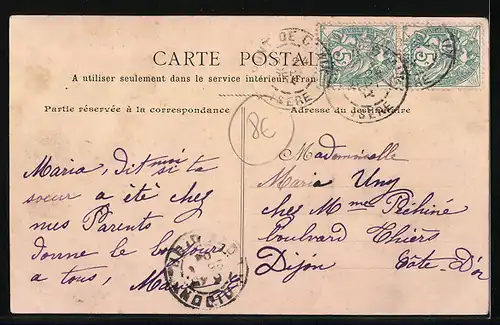 CARTE POSTALE
A utiliser seulement dans le service intérieur (Fran
Partie réservée à la correspondance
Adresse du destinataire
8€
Maria, dit moi si ta
soeur a été chez
mes Parents
donne le bonjour
a tous,
Mademoiselle
Maria Uny
chez Mme Péchiné
boulvard Thiers
Dijon Côte-d'Or
ISÈRE
ISÈRE
DIJON
5
5